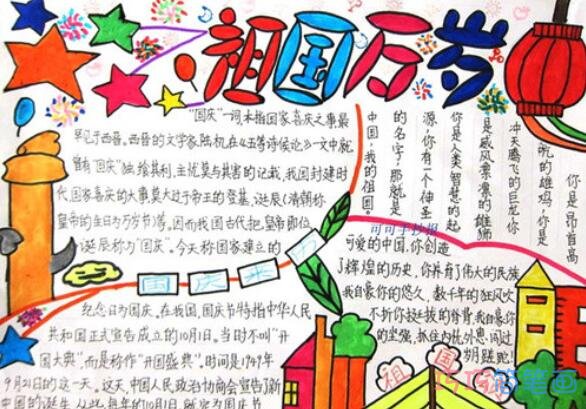 祖国万岁
"国庆"一词,本指国家喜庆之事最
早见于西晋。西晋的文学家陆机,在《五等诸侯论》一文中就
曾有"国庆"独飨其利,主忧莫与其害的记载,我国封建时
代,国家喜庆的大事莫大过于帝王的登基,诞辰(清朝称
皇帝的生日为万岁节)等。因而我国古代把皇帝即位、
诞辰称为"国庆"。今天称国家建立的
国庆来历
纪念日为国庆,在我国,国庆节特指中华人民
共和国正式宣告成立的10月1日。当时不叫"开
国大典"而是称作"开国盛典"。时间是1949年
9月21日的这一天。这天,中国人民政治协商会宣告了新
中国的诞生,从此,每年的10月1日就定为国庆节
你是昂首高
吭的雄鸡,你是
冲天腾飞的巨龙你
是威风凛凛的雄狮
你是人类智慧的起
源,你有一个神圣
的名字,那就是
中国,我的祖国。
可可手抄报
可爱的中国,你创造
了辉煌的历史,你养育了伟大的民族
我自豪你的悠久,数千年的狂风吹
不折你挺拔的脊背,我自豪你
的坚强,抵住内忧外患,闯过
蹉跎!
祖国